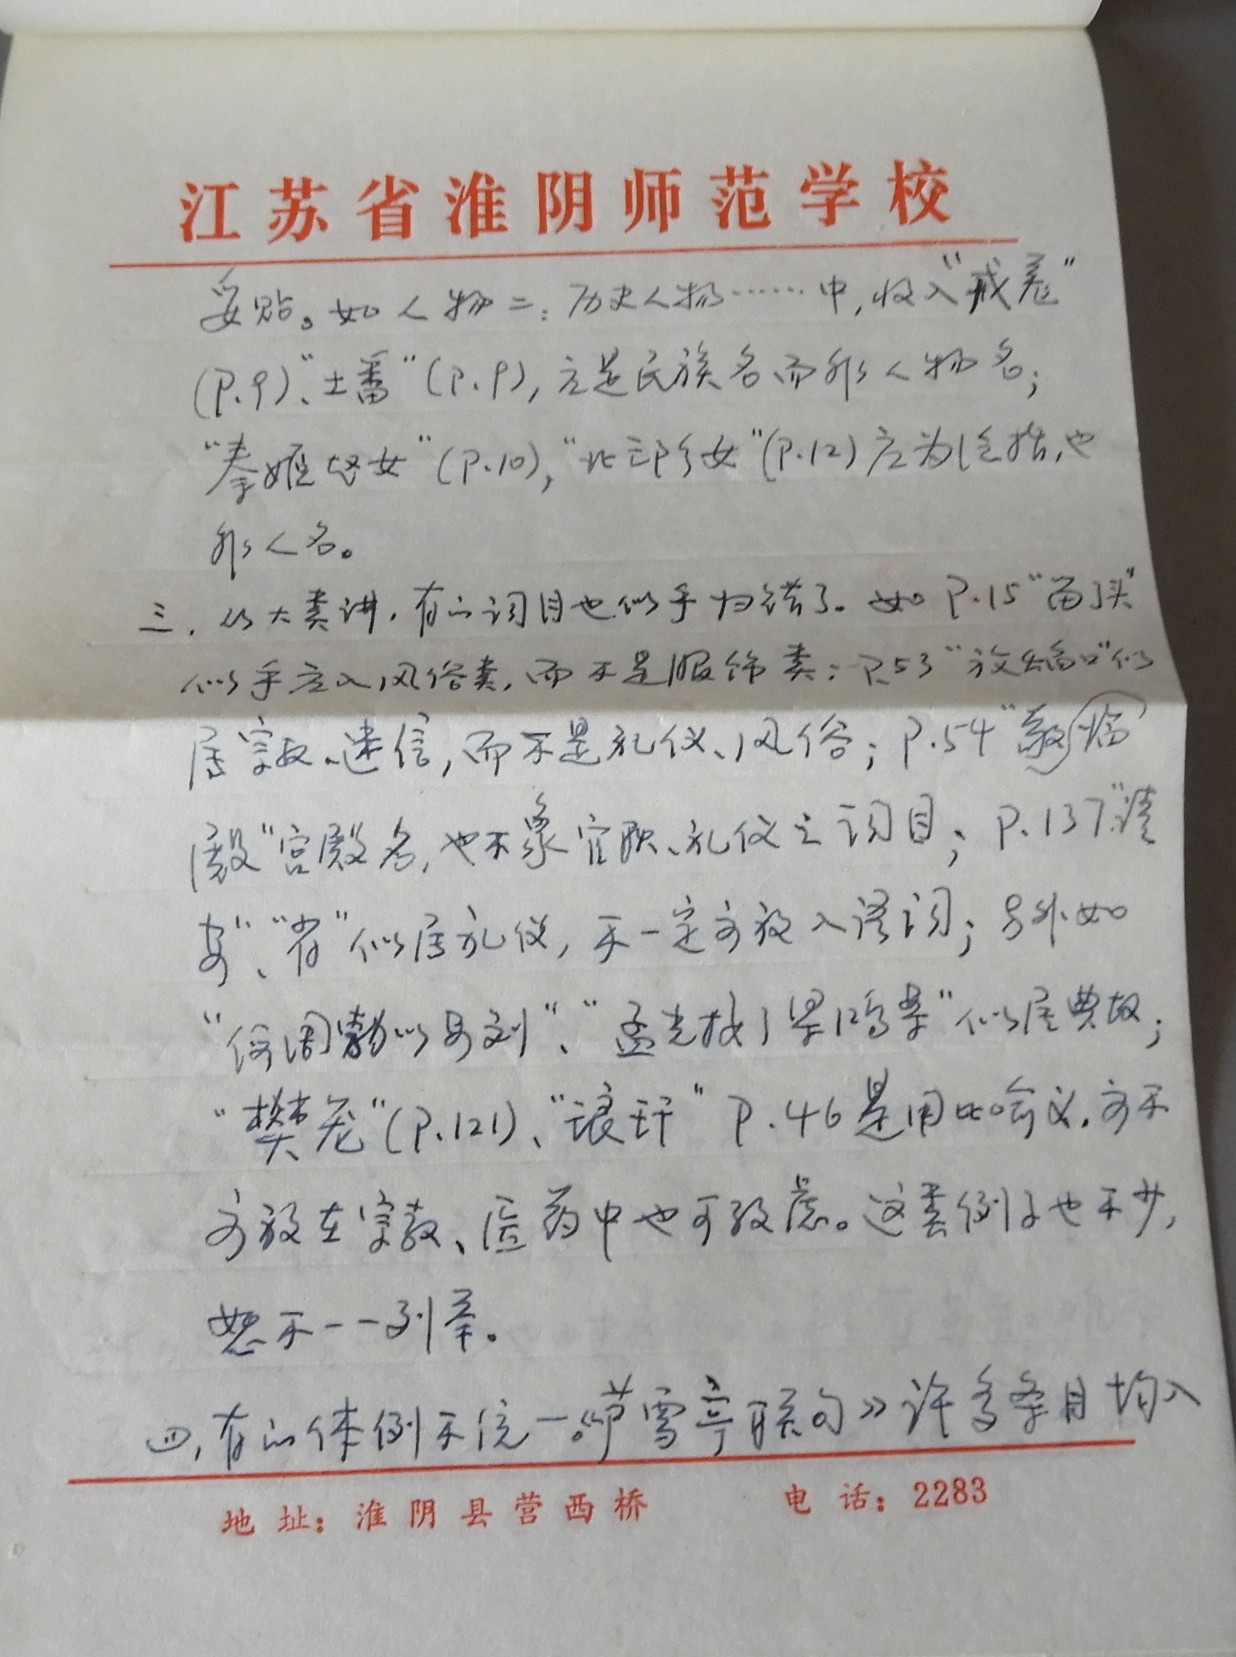 江苏省淮阴师范学校
妥贴。如人物二:历史人物……中,收入"戎羌"
(P.9)、"土番"(P.9),应是民族名而非人物名;
"秦姬越女"(P.10),"北部子女"(P.12)应为泛指,也
非人名。
三、从大类讲,有的词目也似乎归错了。如P.15"留头"
似乎应入风俗类,而不是服饰类;P.53"放焰口"似
居宗教、迷信,而不是礼仪、风俗;P.54"敬临
殿"宫殿名,也不象官职、礼仪之词目;P.137"请
安"、"省"似居礼仪,不一定要放入语词;另外如
"何周勃以安刘"、"孟光接了梁鸿案"似居典故;
"樊笼"(P.121)、"琅玕"P.46是用比喻义,要不
要放在宗教、医药中也可考虑。这类例子也不少,
恕不一一列举。
四、有的体例不统一。《芦雪亭联句》许多条目均入
地址:淮阴县营西桥 电话:2283